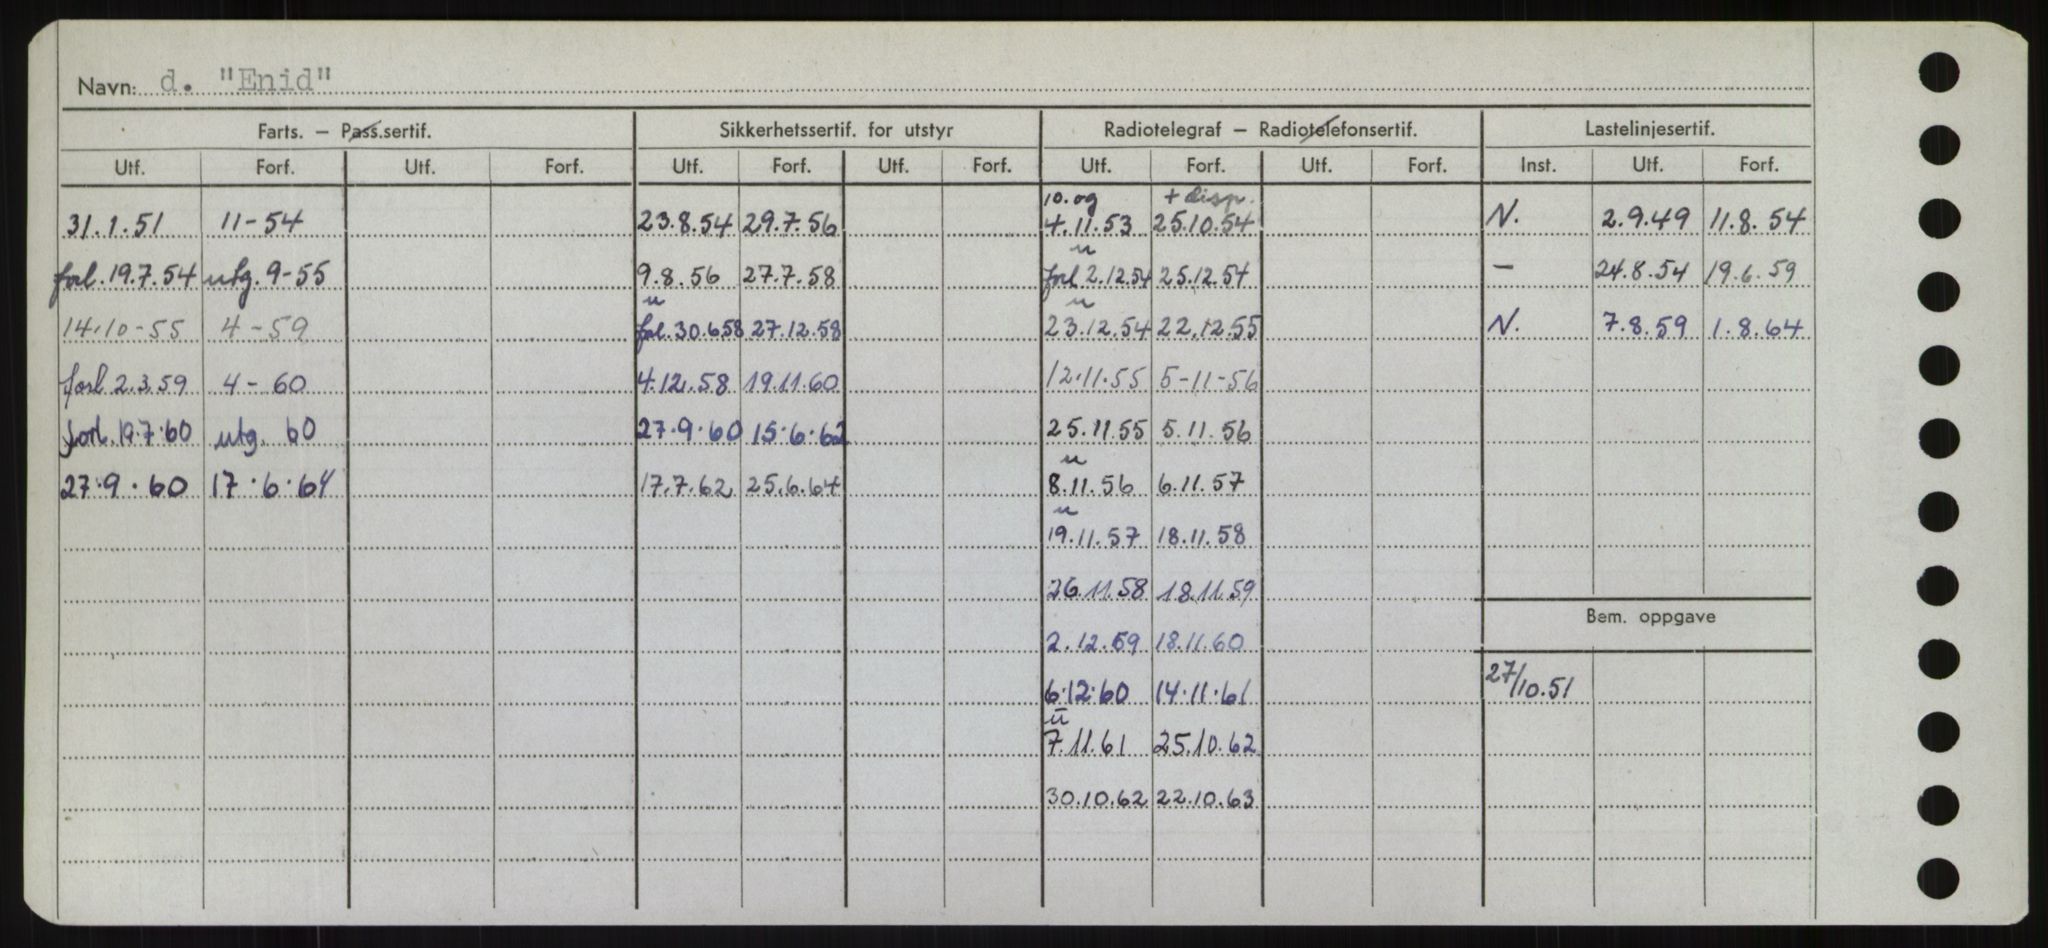 Navn: d. "Enid"
Farts. – Pass.sertif. Sikkerhetssertif. for utstyr Radiotelegraf – Radiotelefonsertif. Lastelinjesertif.
Utf. Forf. Utf. Forf. Utf. Forf. Utf. Forf. Utf. Forf. Utf. Forf. Inst. Utf. Forf.
10. og + disp.
31.1.51 11-54 23.8.54 29.7.56 4.11.53 25.10.54 N. 2.9.49 11.8.54
u
forl. 19.7.54 utg. 9-55 9.8.56 27.7.58 forl 2.12.54 25.12.54 — 24.8.54 19.6.59
u u
14.10-55 4-59 forl. 30.6.58 27.12.58 23.12.54 22.12.55 N. 7.8.59 1.8.64
forl 2.3.59 4-60 4.12.58 19.11.60 12.11.55 5-11-56
forl. 19.7.60 utg. 60 27.9.60 15.6.62 25.11.55 5.11.56
u
27.9.60 17.6.64 17.7.62 25.6.64 8.11.56 6.11.57
u
19.11.57 18.11.58
26.11.58 18.11.59
Bem. oppgave
2.12.59 18.11.60
6.12.60 14.11.61 27/10.51
u
7.11.61 25.10.62
30.10.62 22.10.63